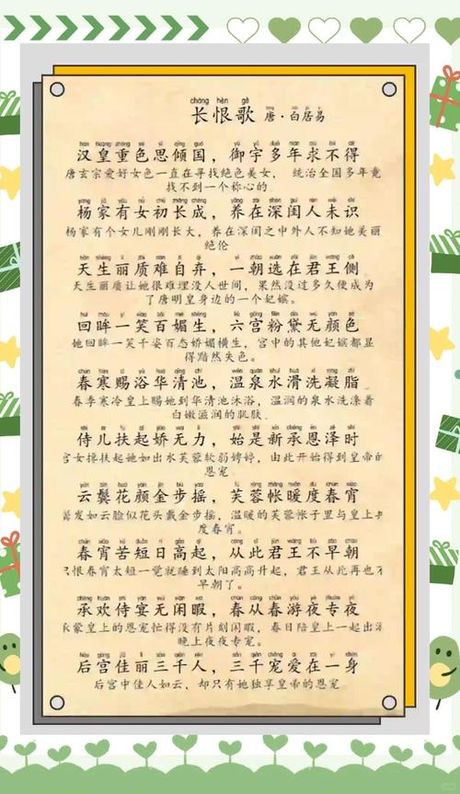 cháng hèn gē
长恨歌 唐·白居易
汉皇重色思倾国，御宇多年求不得
唐玄宗爱好女色一直在寻找绝色美女， 统治全国多年竟
找不到一个称心的
杨家有女初长成，养在深闺人未识
杨家有个女儿刚刚长大，养在深闺之中外人不知她美丽
绝伦
天生丽质难自弃，一朝选在君王侧
天生丽质让她很难埋没人世间，果然没过多久便成为
了唐明皇身边的一个妃嫔。
回眸一笑百媚生，六宫粉黛无颜色
她回眸一笑千姿百态娇媚横生，宫中的其他妃嫔都显
得黯然失色。
春寒赐浴华清池，温泉水滑洗凝脂
春季寒冷皇上赐她到华清池沐浴，温润的泉水洗涤着
白嫩滋润的肌肤
侍儿扶起娇无力，始是新承恩泽时
宫女搀扶起她如出水芙蓉软弱娉婷，由此开始得到皇帝的
恩宠
云鬓花颜金步摇，芙蓉帐暖度春宵
鬓发如云脸似花头戴金步摇，温暖的芙蓉帐子里与皇上共
度春宵。
春宵苦短日高起，从此君王不早朝
只恨春宵太短一觉就睡到太阳高高升起，君王从此再也不
早朝了。
承欢侍宴无闲暇，春从春游夜专夜
承蒙皇上的恩宠忙得没有片刻闲暇，春日陪皇上一起出游
晚上夜夜专宠。
后宫佳丽三千人，三千宠爱在一身
后宫中佳人如云，却只有她独享皇帝的恩宠